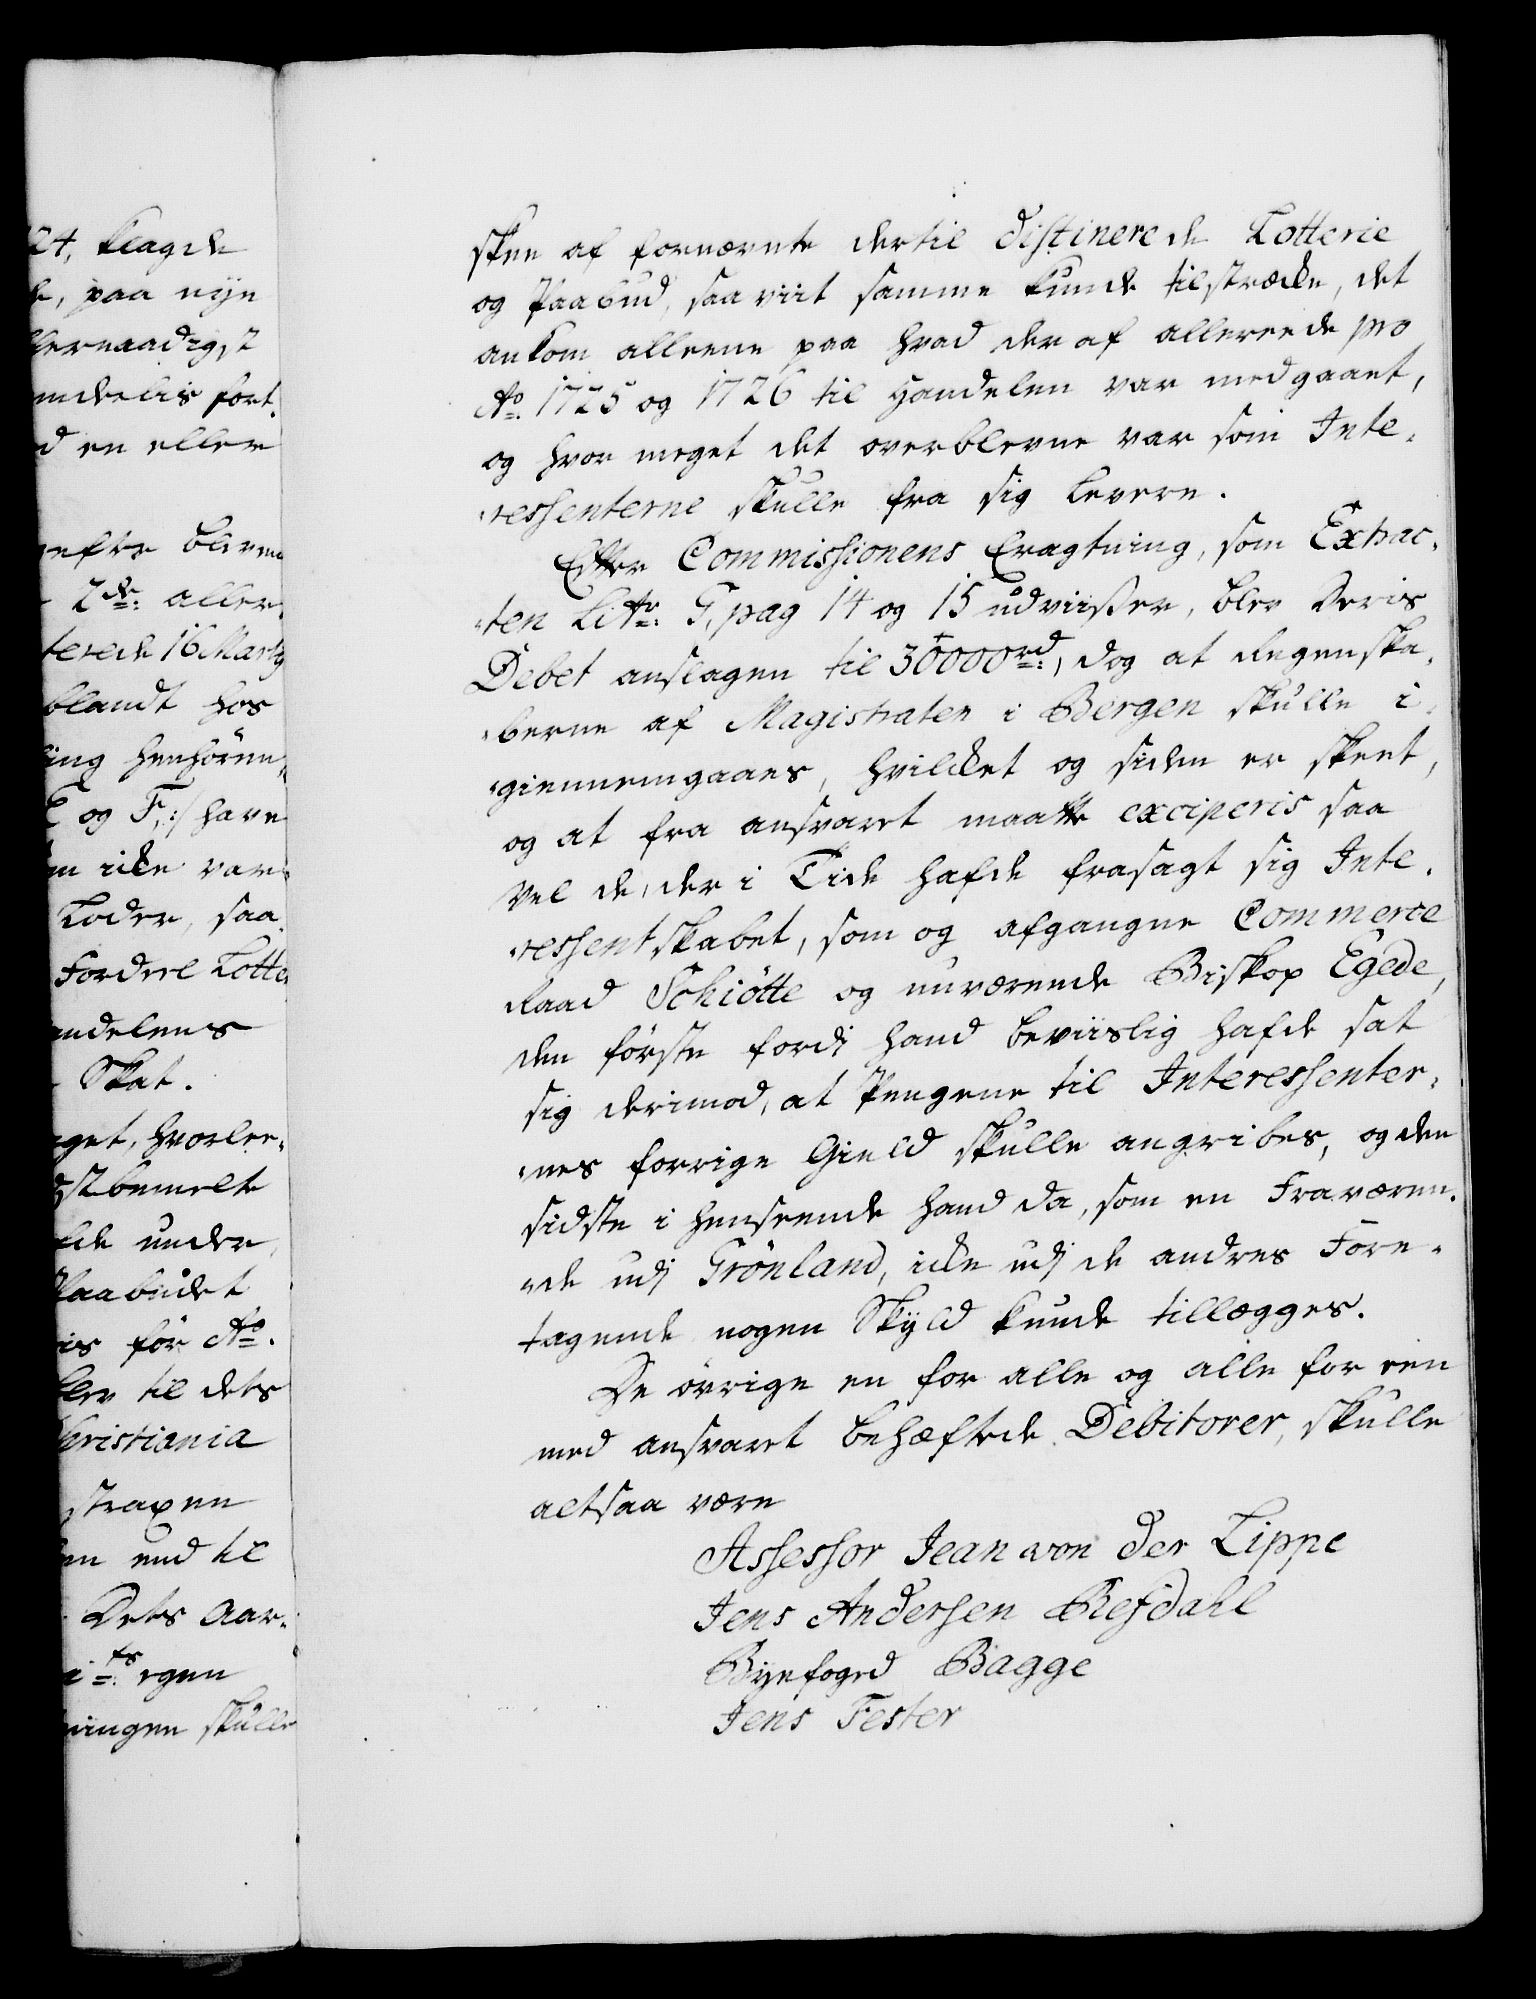 24, klagede
paa nye
allernaadigst
fort.
d en eller
efter bleven
2de: aller
terede 16 Marty
blandt hos
ing henhören,
E og F,:/ have
icke var
Loder, saa
Fordeel Lotte
andelens
Skat.
get, hvorlee,
stbemelte
fde under
Paabudet
is för Ao.
blev til dets
Christiania
straxen
en end til
Dets Aar,
i ts: egen
ningen skulle
skee af fornævnte dertil distinerede Lotterie
og Paabud, saa viit samme kunde tilstrecke, det
ankom alleene paa hvad deraf allereede pro
Ao. 1725 og 1726 til Handelen var medgaaet,
og hvor meget det overblevne var som Inte,
,ressenterne skulle fra sig levere.
Efter Commissionens Eragtning, som Extrac,
,ten Littr: G, pag 14 og 15 udviiser, blev Deris
Debet anslagen til 30000 rd:, dog at Regenska,
,berne af Magistraten i Bergen skulle i,
,giennemgaaes, hvilcket og siden er skeet,
og at fra ansvaret maatte exciperis saa
vel de, der i Tide hafde frasagt sig Inte,
,ressentskabet, som og afgangne Commerce
Raad Schiötte og nuværende Biskop Egede,
den förste fordi hand beviislig hafde sat
sig derimod, at Pengene til Interessenter,
,nes forrige Gield skulle angribes, og den
sidste i henseende hand da, som en Fraværen,
,de udj Grönland, icke udj de andres Fore,
tagende nogen Skyld kunde tillægges.
De övrige en for alle og alle for een
med ansvaret behæftede Debitorer, skulle
altsaa være
Assessor Jean von der Lippe
Jens Andersen Refdahl
Byefoged Bagge
Jens Fester